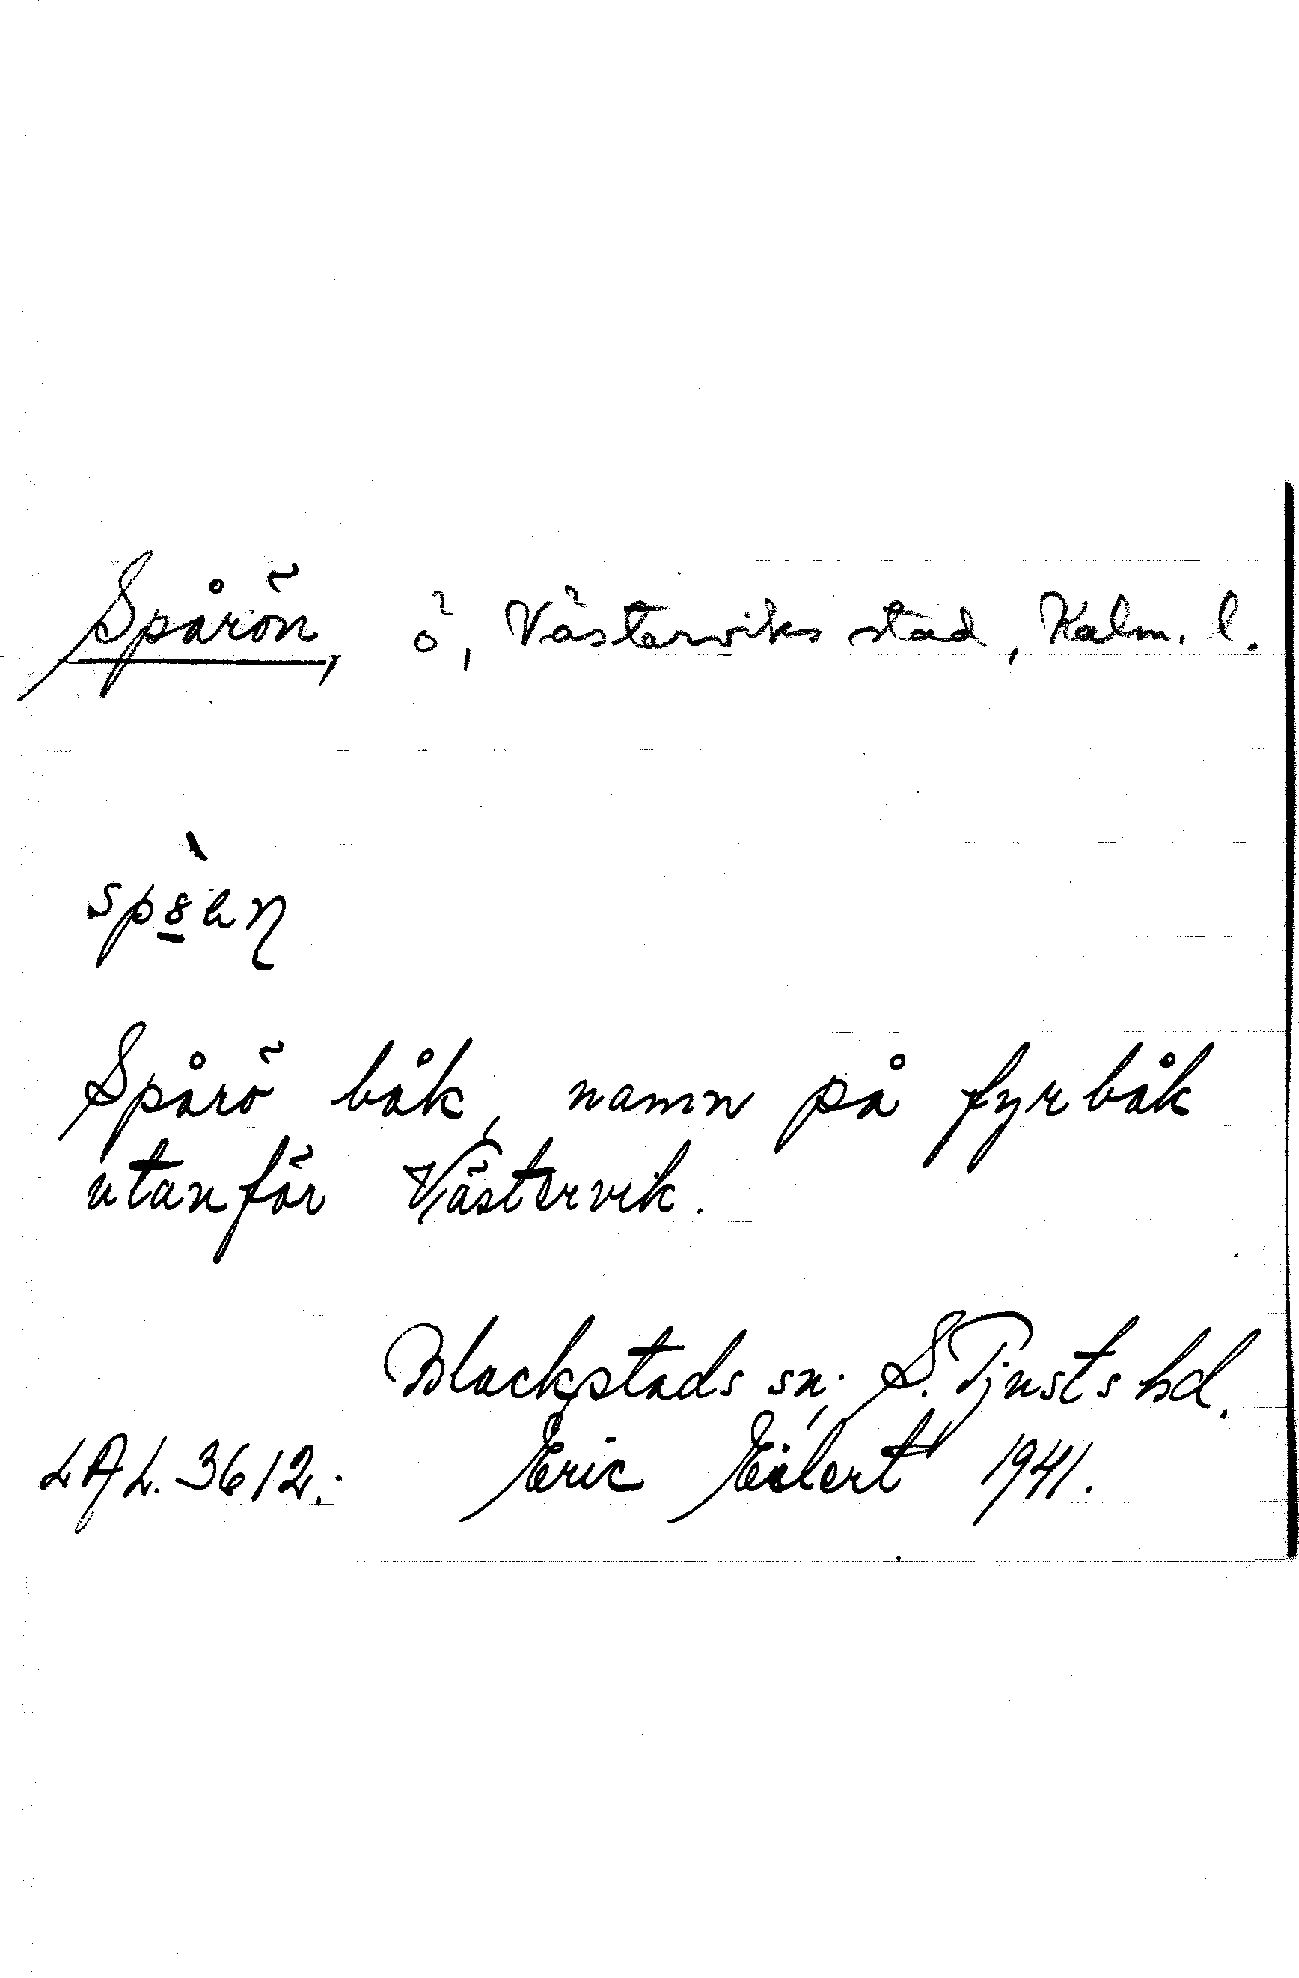 Spårön, ö, Västerviks stad, Kalm. l.
Spårö båk, namn på fyrbåk
utanför Västervik.
Blackstads sn; S. Tjusts hd.
LAL. 3612. Eric Eilert 1941.